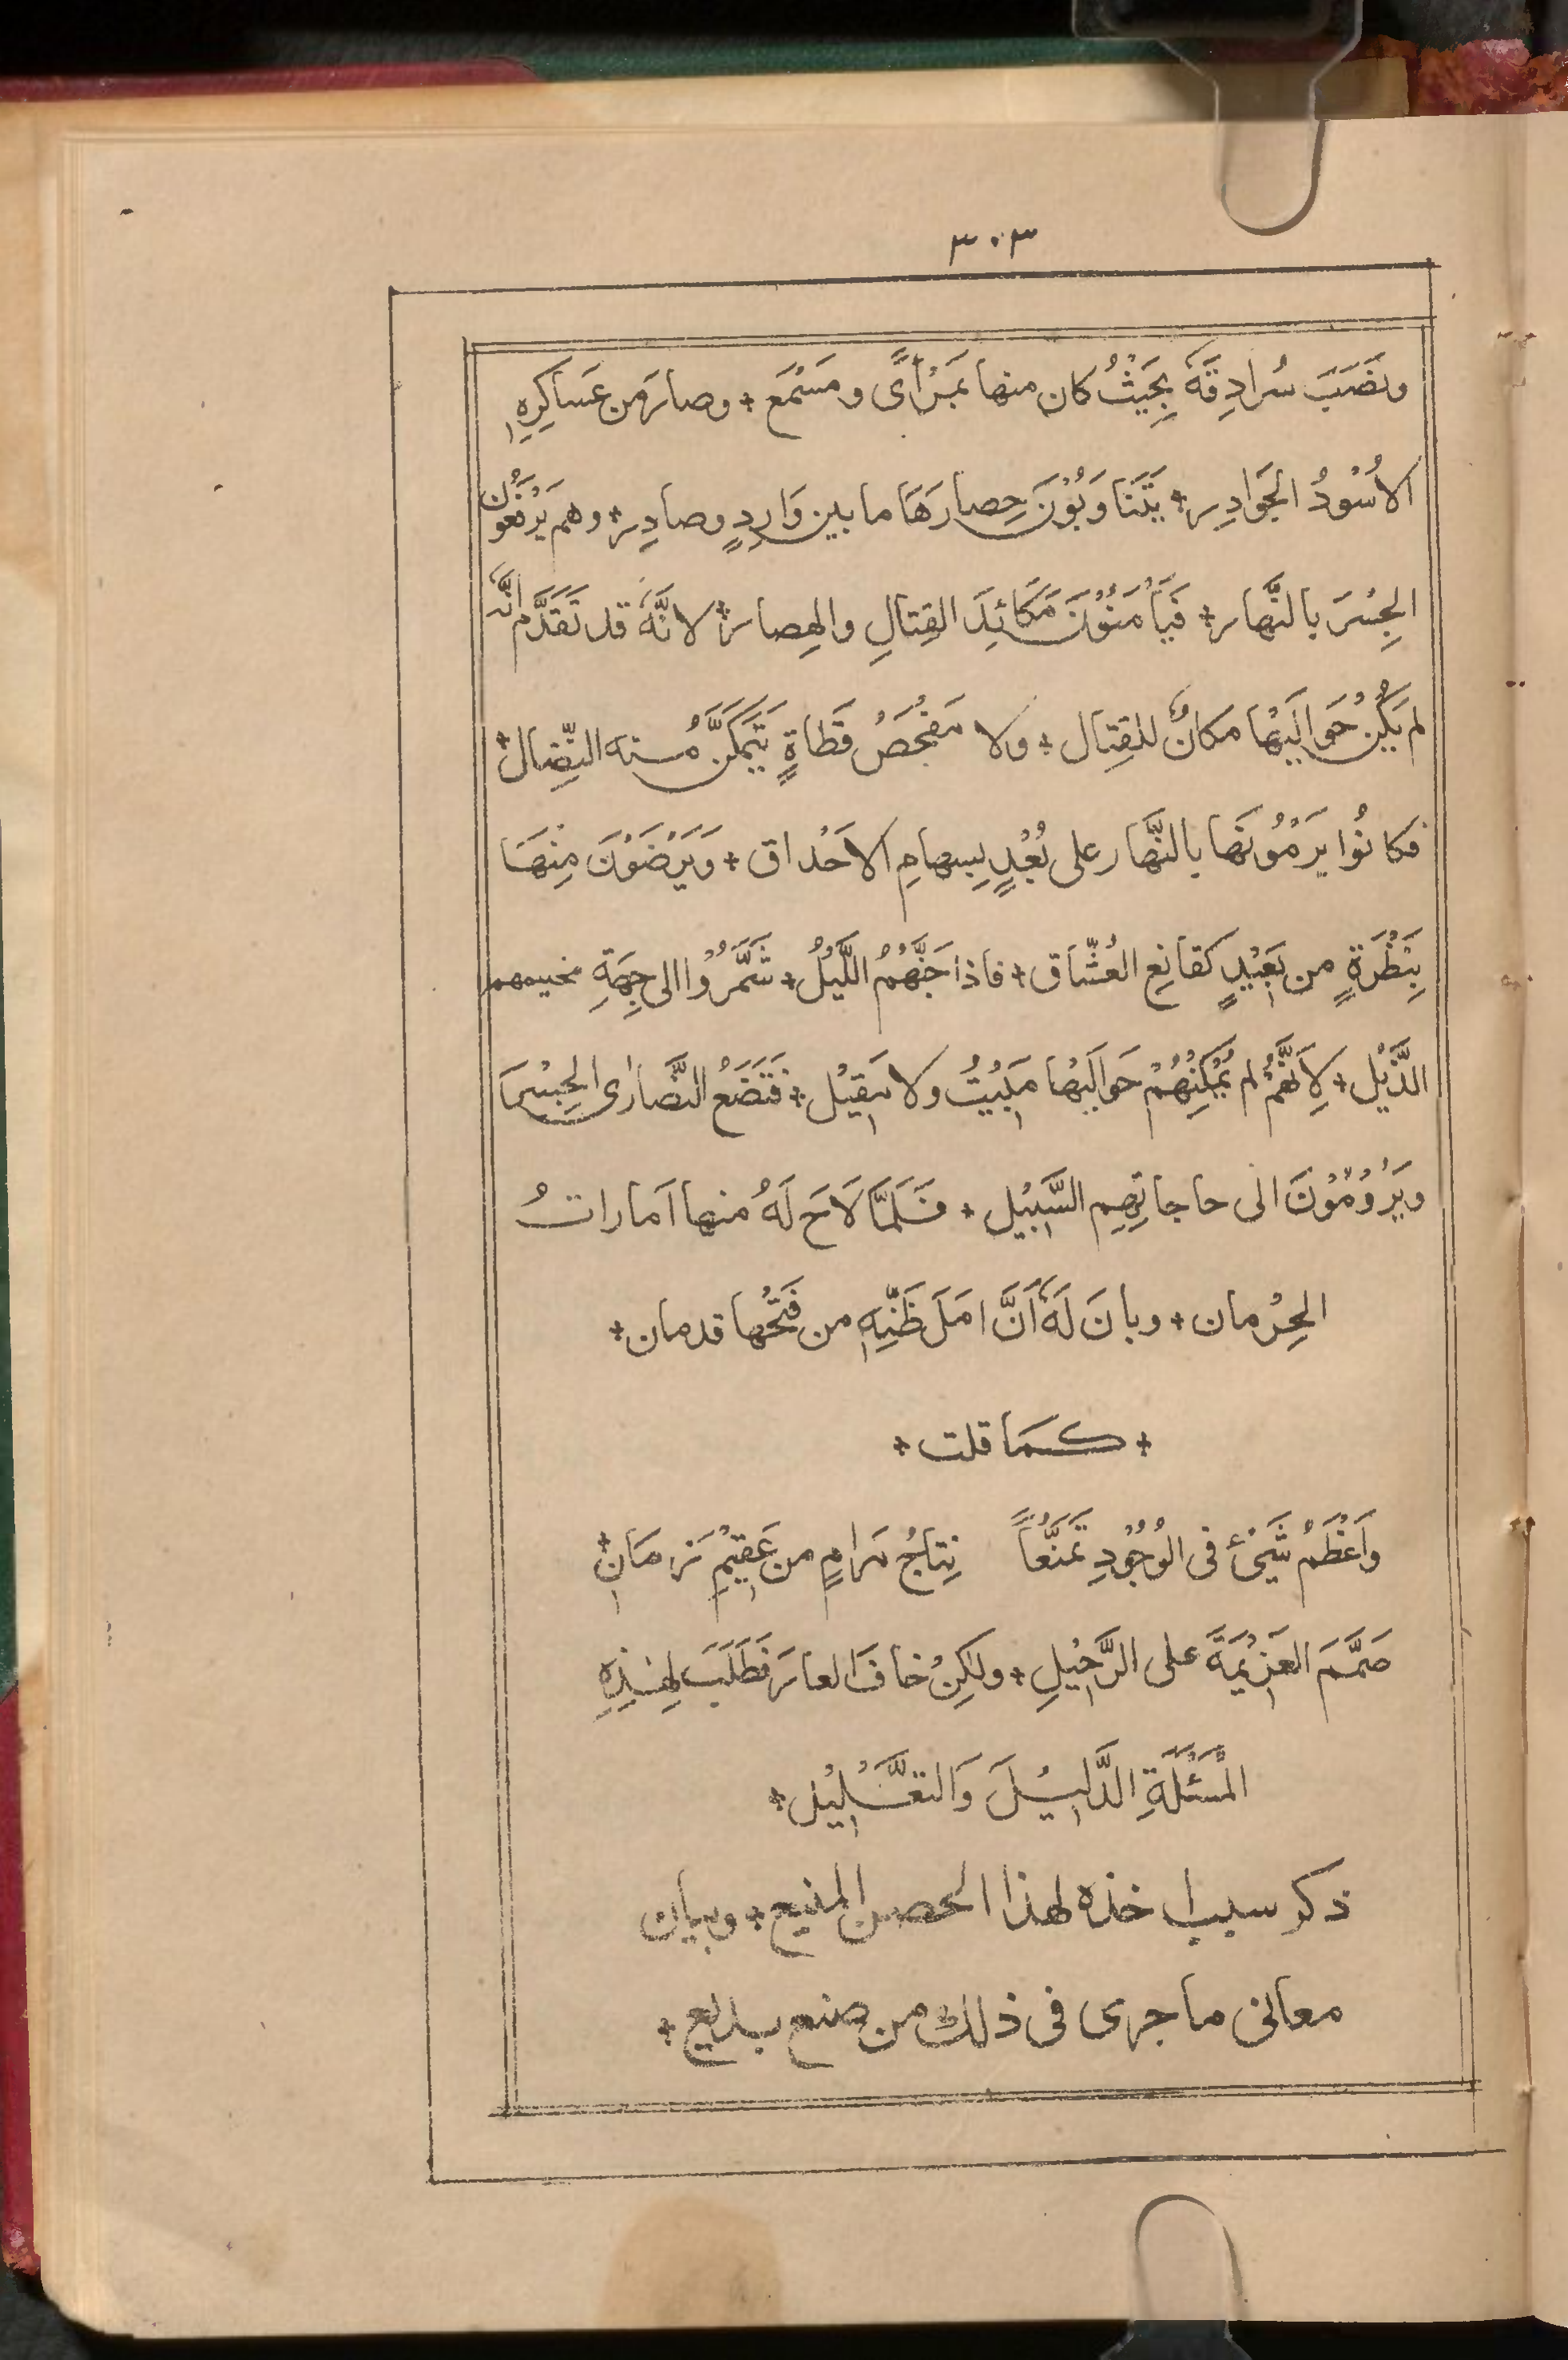 ٣٠٣
ونَصَبَ سُرادِقَهٗ بِحَيْثُ كان منها بِمَرْأًى و مَسْمَع + وصارَ من عَساكِرِهٖ
الاُسُوْدُ الحَوادِر + يَتَنَاوَبُوْنَ حِصارَهَا ما بين وَارِدٍ وصادِر + وهم يَرْفَعُوْن
الجِسْرَ بالنَّهار + فَيَأْمَنُوْنَ مَكائِدَ القِتالِ والهِصار + لانَّهٗ قد تَقَدَّم انَّهٗ
لم يَكُنْ حَوالَيْها مكانٌ للقِتال + ولا مَفْحَصُ قَطاةٍ يَتَمَكَّنُ منه النِّضال +
فكانُوْا يَرْمُوْنَها بالنَّهار على بُعْدٍ بِسِهامِ الاَحْداق + وَيَرْضَوْنَ مِنْهَا
بِنَظْرَةٍ من بَعِيْدٍ كقانِعِ العُشّاق + فاذا جَنَّهُمُ اللَّيْلُ + شَمَّرُوْا الى جِهَةِ مخيمهم
الذَّيْل + لِاَنَّهُمْ لم يُمْكِنْهُمْ حَوالَيْها مَبِيْتٌ ولا مَقِيْل + فَتَضَعُ النَّصارٰى الجِسْرَ
ويَرُوْمُوْنَ الى حاجاتِهِم السَّبِيْل + فَلَمَّا لَاحَ لَهُ منها اَماراتُ
الحِرْمان + وبانَ لَهٗ اَنَّ امَلَ ظَنِّهٖ من فَتْحِها قد مان +
+ كَمَا قلت +
واَعْظَمُ شَيْئٍ فى الوُجُوْدِ تَمَنُّعاً نِتاجُ مَرامٍ من عَقِيْمِ زَمَانٖ +
صَمَّمَ العَزِيْمَةَ على الرَّحِيْلِ + ولٰكِنْ خافَ العارَ فَطَلَبَ لِهٰذِهِ
المَسْئَلَةِ الدَّلِيْلَ وَالتَّعْلِيْل +
ذكر سبب اخذه لهذا الحصن المنيع + وبيان
معانى ما جرى فى ذلك من صنع بديع +